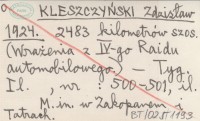 KLESZCZYŃSKI Zdzisław
1924. 2483 kilometrów szos.
(Wrażenia z IV-go Raidu
automobilowego.) — Tyg.
Il., nr : 500-501, il.
M.in. w Zakopanem i
Tatrach.